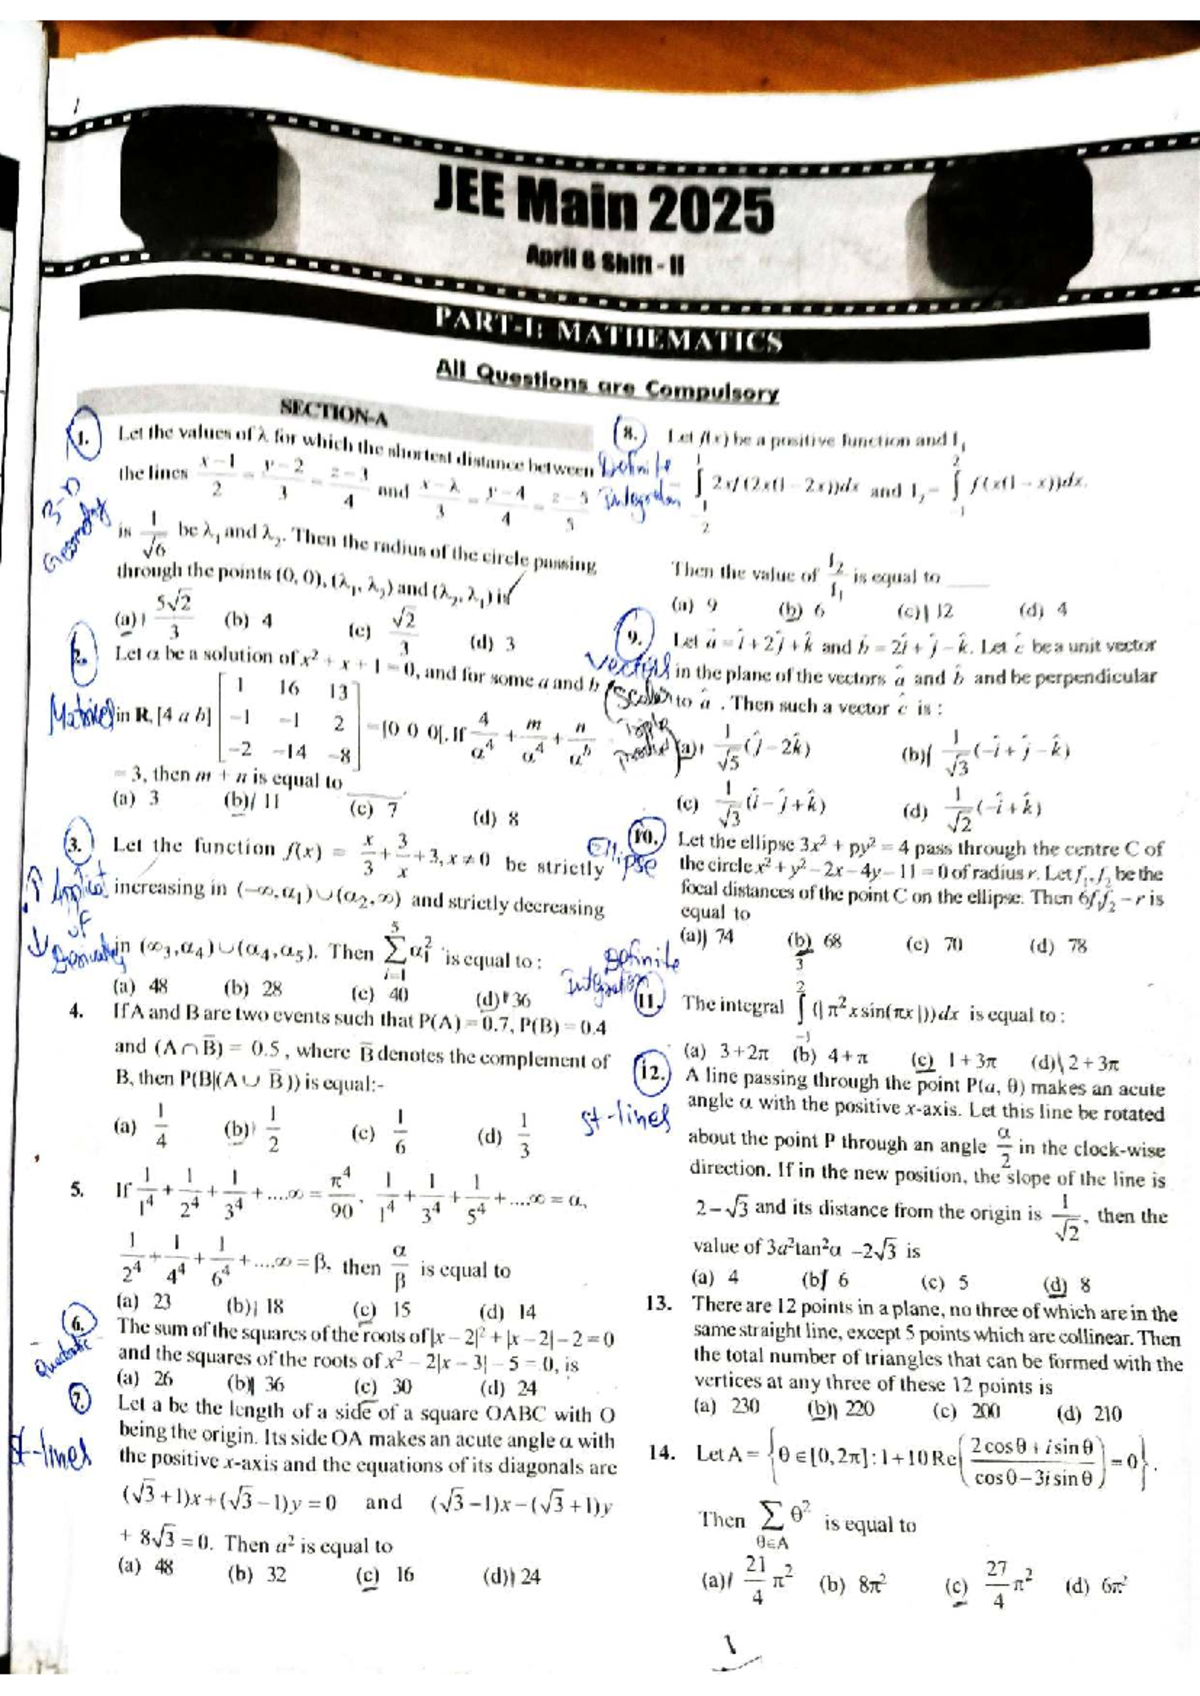 JEE Main 2025
April 8 Shift - II
PART-I: MATHEMATICS
All Questions are Compulsory
SECTION-A
1. Let the values of λ for which the shortest distance between
the lines (x−1)/2 = (y−2)/3 = (z−3)/4 and (x−λ)/3 = (y−4)/4 = (z−5)/5
is 1/√6 be λ₁ and λ₂. Then the radius of the circle passing
through the points (0, 0), (λ₁, λ₂) and (λ₂, λ₁) is
(a) 5√2/3 (b) 4 (c) √2/3 (d) 3
3-D Geometry
2. Let α be a solution of x² + x + 1 = 0, and for some a and b
in R, [4 a b] [1 16 13; −1 −1 2; −2 −14 −8] = [0 0 0]. If 4/α⁴ + m/αᵃ + n/αᵇ
= 3, then m + n is equal to ____
(a) 3 (b) 11 (c) 7 (d) 8
Matrices
3. Let the function f(x) = x/3 + 3/x + 3, x ≠ 0 be strictly
increasing in (−∞, α₁) ∪ (α₂, ∞) and strictly decreasing
in (∞₃, α₄) ∪ (α₄, α₅). Then Σ(i=1 to 5) αᵢ² is equal to :
(a) 48 (b) 28 (c) 40 (d) 36
↑ Applicat of ↓ Derivative
4. If A and B are two events such that P(A) = 0.7, P(B) = 0.4
and (A ∩ B̄) = 0.5, where B̄ denotes the complement of
B, then P(B|(A ∪ B̄)) is equal:-
(a) 1/4 (b) 1/2 (c) 1/6 (d) 1/3
5. If 1/1⁴ + 1/2⁴ + 1/3⁴ + ....∞ = π⁴/90, 1/1⁴ + 1/3⁴ + 1/5⁴ + ....∞ = α,
1/2⁴ + 1/4⁴ + 1/6⁴ + ....∞ = β, then α/β is equal to
(a) 23 (b) 18 (c) 15 (d) 14
6. The sum of the squares of the roots of |x − 2|² + |x − 2| − 2 = 0
and the squares of the roots of x² − 2|x − 3| − 5 = 0, is
(a) 26 (b) 36 (c) 30 (d) 24
Quadratic
7. Let a be the length of a side of a square OABC with O
being the origin. Its side OA makes an acute angle α with
the positive x-axis and the equations of its diagonals are
(√3 + 1)x + (√3 − 1)y = 0 and (√3 − 1)x − (√3 + 1)y
+ 8√3 = 0. Then a² is equal to
(a) 48 (b) 32 (c) 16 (d) 24
st-lines
8. Let f(x) be a positive function and I₁
= ∫ 2xf(2x(1 − 2x))dx and I₂ = ∫(−1 to 2) f(x(1 − x))dx.
Then the value of I₂/I₁ is equal to ____
(a) 9 (b) 6 (c) 12 (d) 4
Definite Integration
9. Let a = î + 2ĵ + k̂ and b = 2î + ĵ − k̂. Let ĉ be a unit vector
in the plane of the vectors a and b and be perpendicular
to a . Then such a vector ĉ is :
(a) 1/√5(ĵ − 2k̂) (b) 1/√3(−î + ĵ − k̂)
(c) 1/√3(î − ĵ + k̂) (d) 1/√2(−î + k̂)
Vectors (Scaler Triple Product)
10. Let the ellipse 3x² + py² = 4 pass through the centre C of
the circle x² + y² − 2x − 4y − 11 = 0 of radius r. Let f₁, f₂ be the
focal distances of the point C on the ellipse. Then 6f₁f₂ − r is
equal to
(a) 74 (b) 68 (c) 70 (d) 78
Ellipse
11. The integral ∫(−1 to 3/2) (| π²x sin(πx |))dx is equal to :
(a) 3 + 2π (b) 4 + π (c) 1 + 3π (d) 2 + 3π
Definite Integration
12. A line passing through the point P(a, θ) makes an acute
angle α with the positive x-axis. Let this line be rotated
about the point P through an angle α/2 in the clock-wise
direction. If in the new position, the slope of the line is
2 − √3 and its distance from the origin is 1/√2, then the
value of 3a²tan²α − 2√3 is
(a) 4 (b) 6 (c) 5 (d) 8
st-lines
13. There are 12 points in a plane, no three of which are in the
same straight line, except 5 points which are collinear. Then
the total number of triangles that can be formed with the
vertices at any three of these 12 points is
(a) 230 (b) 220 (c) 200 (d) 210
14. Let A = {θ ∈ [0, 2π] : 1 + 10 Re((2cosθ + i sinθ)/(cosθ − 3i sinθ)) = 0}.
Then Σ(θ∈A) θ² is equal to
(a) 21/4 π² (b) 8π² (c) 27/4 π² (d) 6π²
1